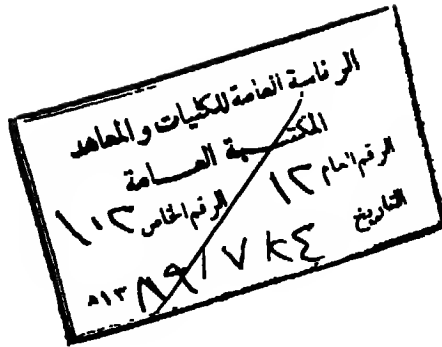 الرئاسة العامة للكليات والمعاهد
المكتبة العامة
الرقم العام ١٢ الرقم الخاص ١٠٢
التاريخ ٢٤ / ٧ / ٨٩ ١٣ هـ